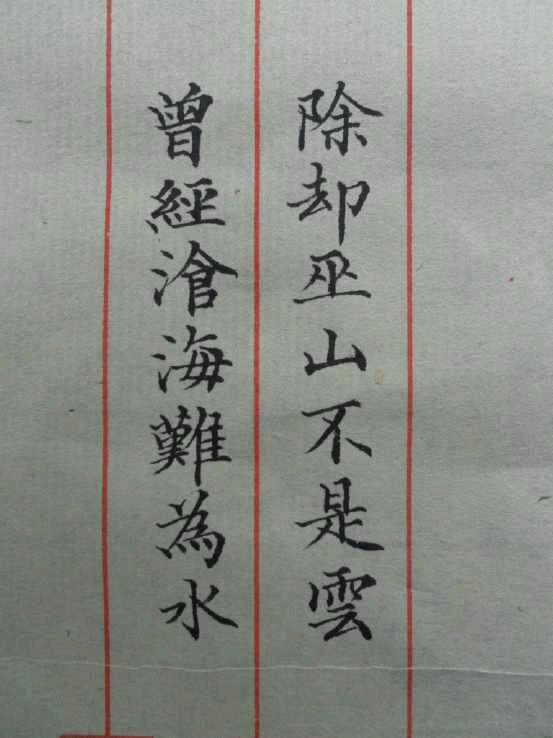 除却巫山不是雲
曾經滄海難為水